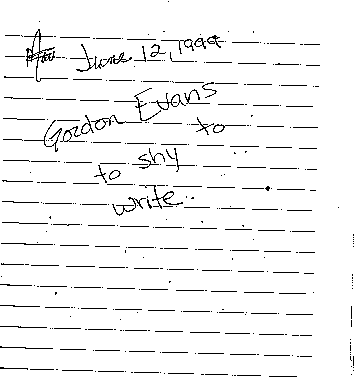 June 12, 1999
Gordon Evans
to
to shy
write.